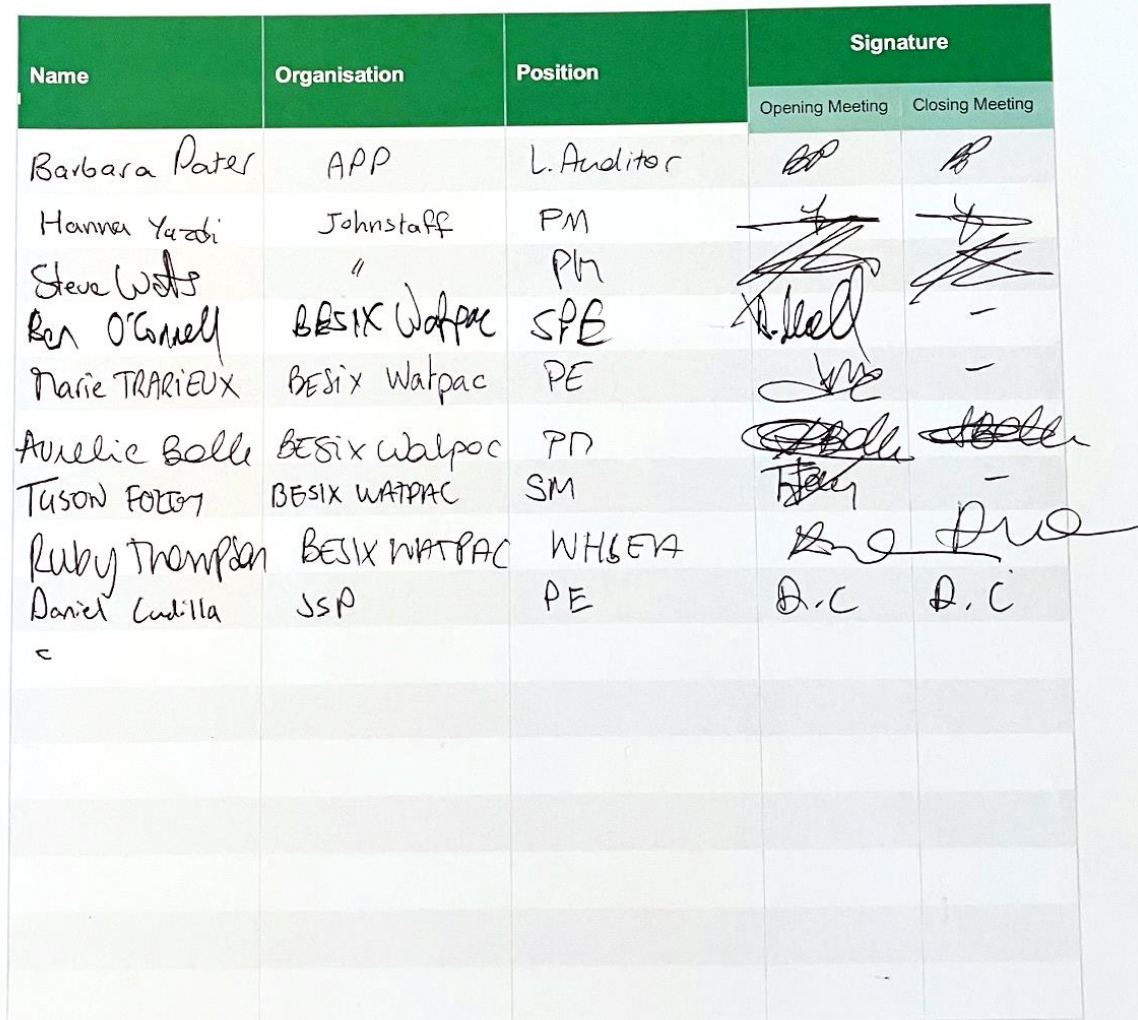 Signature
Name Organisation Position
Opening Meeting Closing Meeting
Barbara Pater APP L. Auditor BP
Hanna Yazdi Johnstaff PM
Steve Watts " PM
Ben O'Connell BESIX Watpac SPE -
Marie TRARIEUX BESix Watpac PE -
Aurelie Bolle BESix Watpac PM
BESIX WATPAC SM -
Ruby Thompson BESIX WATPAC
Daniel JSP PE D.C D.C